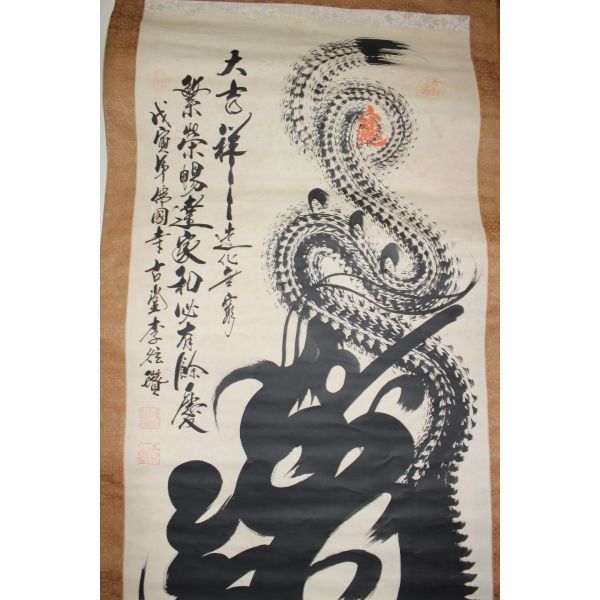 大吉祥〻造化無窮
繁榮暢達家和必有餘慶
戊寅年佛國寺古堂李炫讚
龍